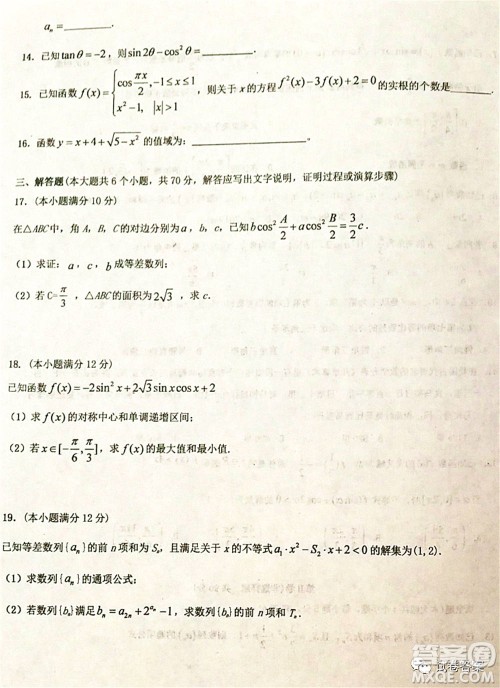 a_n = ________.
14. 已知 tanθ=-2，则 sin2θ-cos²θ=________.
15. 已知函数 f(x)={cos(πx/2),-1≤x≤1; x²-1, |x|>1}，则关于 x 的方程 f²(x)-3f(x)+2=0 的实根的个数是________.
16. 函数 y=x+4+√(5-x²) 的值域为：________.
三、解答题(本大题共 6 个小题，共 70 分，解答应写出文字说明，证明过程或演算步骤)
17.（本小题满分 10 分）
在△ABC中，角 A、B、C 的对边分别为 a，b，c，已知 bcos²(A/2)+acos²(B/2)=(3/2)c.
（1）求证：a，c，b 成等差数列；
（2）若 C=π/3，△ABC 的面积为 2√3，求 c.
18.（本小题满分 12 分）
已知函数 f(x)=-2sin²x+2√3sinxcosx+2
（1）求 f(x) 的对称中心和单调递增区间；
（2）若 x∈[-π/6, π/3]，求 f(x) 的最大值和最小值.
19.（本小题满分 12 分）
已知等差数列{a_n}的前 n 项和为 S_n，且满足关于 x 的不等式 a₁·x²-S₂·x+2<0 的解集为(1,2).
（1）求数列{a_n}的通项公式；
（2）若数列{b_n}满足 b_n=a_{2n}+2^{a_n}-1，求数列{b_n}的前 n 项和 T_n.
试卷答案
答案圈